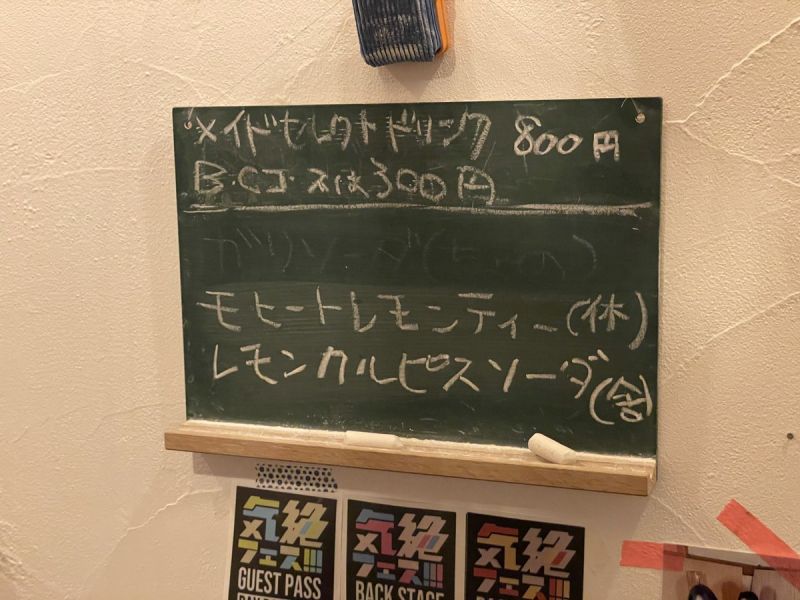 メイドセレクトドリンク 800円
B・Cコースは300円
ガリソーダ(
モヒートレモンティー(休)
レモンカルピスソーダ(舎)
気絶
フェス!!!
GUEST PASS
気絶
フェス!!!
BACK STAGE
気絶
フェス!!!